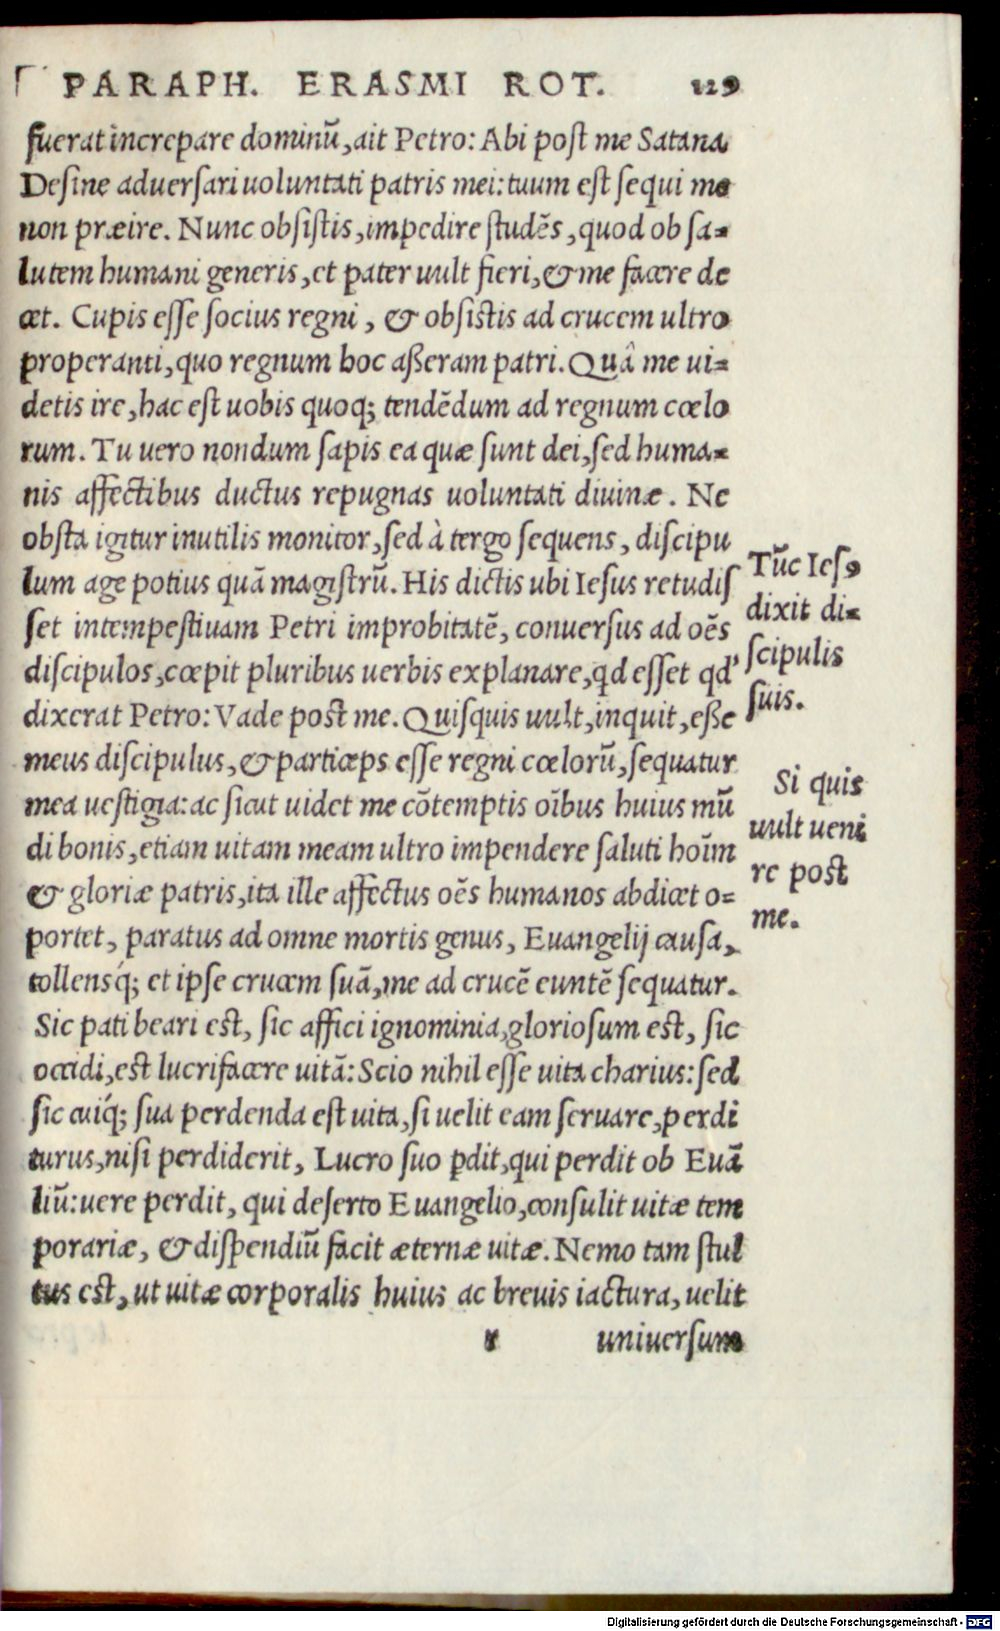 PARAPH. ERASMI ROT. 129
fuerat increpare dominū, ait Petro: Abi post me Satana
Desine aduersari uoluntati patris mei: tuum est sequi me
non præire. Nunc obsistis, impedire studēs, quod ob sa=
lutem humani generis, et pater uult fieri, & me facere de
cet. Cupis esse socius regni, & obsistis ad crucem ultro
properanti, quo regnum hoc aßeram patri. Quâ me ui=
detis ire, hac est uobis quoq; tendēdum ad regnum cœlo
rum. Tu uero nondum sapis ea quæ sunt dei, sed huma=
nis affectibus ductus repugnas uoluntati diuinæ. Ne
obsta igitur inutilis monitor, sed à tergo sequens, discipu
lum age potius quā magistrū. His dictis ubi Iesus retudis
set intempestiuam Petri improbitatē, conuersus ad oēs
discipulos, cœpit pluribus uerbis explanare, qd esset qd'
dixerat Petro: Vade post me. Quisquis uult, inquit, eße
meus discipulus, & particeps esse regni cœlorū, sequatur
mea uestigia: ac sicut uidet me cōtemptis oībus huius mū
di bonis, etiam uitam meam ultro impendere saluti hoīm
& gloriæ patris, ita ille affectus oēs humanos abdicet o=
portet, paratus ad omne mortis genus, Euangelij causa,
tollensq́; et ipse crucem suā, me ad crucē euntē sequatur.
Sic pati beari est, sic affici ignominia, gloriosum est, sic
occidi, est lucrifacere uitā: Scio nihil esse uita charius: sed
sic cuiq́; sua perdenda est uita, si uelit eam seruare, perdi
turus, nisi perdiderit, Lucro suo ꝑdit, qui perdit ob Euā
liū: uere perdit, qui deserto Euangelio, consulit uitæ tem
porariæ, & dispendiū facit æternæ uitæ. Nemo tam stul
tus est, ut uitæ corporalis huius ac breuis iactura, uelit
r universum
Tūc Iesꝯ
dixit di=
scipulis
suis.
Si quis
uult ueni
re post
me.
Digitalisierung gefördert durch die Deutsche Forschungsgemeinschaft - DFG